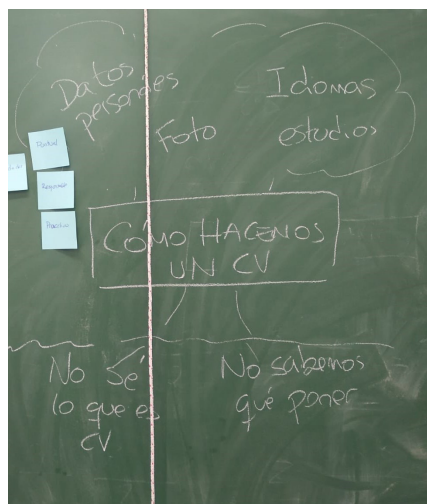 Datos
personales
Idiomas
Foto
estudios
CÓMO HACEMOS
UN CV
No sé
lo que es
CV
No sabemos
qué poner